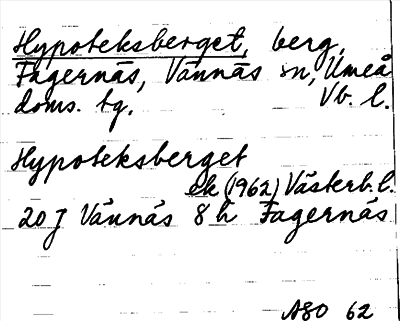 Hypoteksberget, berg,
Fagernäs, Vännäs sn, Umeå
doms. tg. Vb. l.
Hypoteksberget
ek (1962) Västerb. l.
20 J Vännäs 8 h Fagernäs
ASO 62